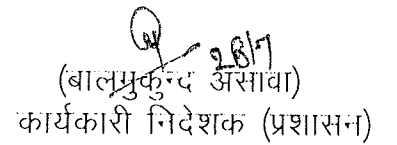 28/7
(बालमुकुन्द असावा)
कार्यकारी निदेशक (प्रशासन)